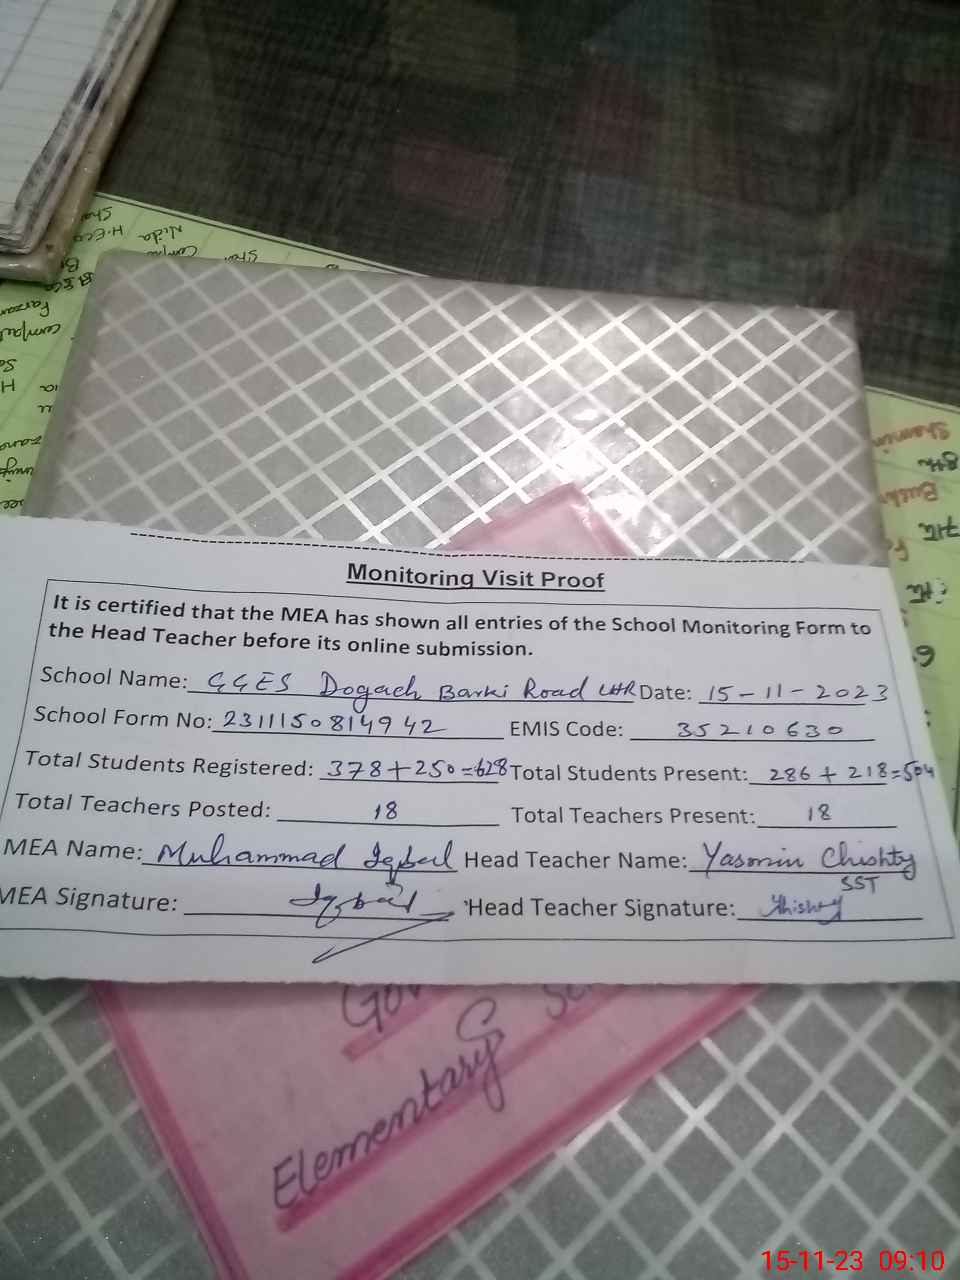 Monitoring Visit Proof
It is certified that the MEA has shown all entries of the School Monitoring Form to
the Head Teacher before its online submission.
School Name: GGES Dogach Barki Road LHR Date: 15-11-2023
School Form No: 2311150814942 EMIS Code: 35210630
Total Students Registered: 378+250=628 Total Students Present: 286+218=504
Total Teachers Posted: 18 Total Teachers Present: 18
MEA Name: Muhammad Iqbal Head Teacher Name: Yasmin Chishty
SST
MEA Signature: Iqbal Head Teacher Signature: Chishty
Gov
G
Elementary
Nida
H.Eco
Sha
Farzan
Shamim
8th
7th
15-11-23 09:10